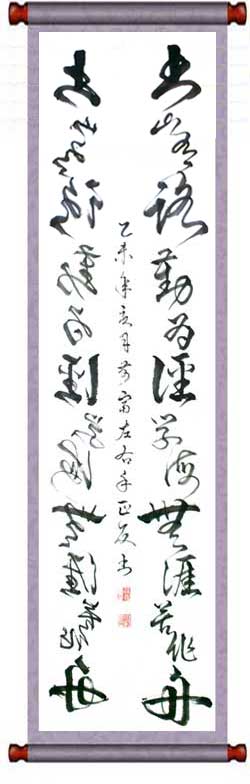 书山有路勤为径学海無涯苦作舟
乙未年亥月富左右手正反书
书山有路勤为径学海無涯苦作舟